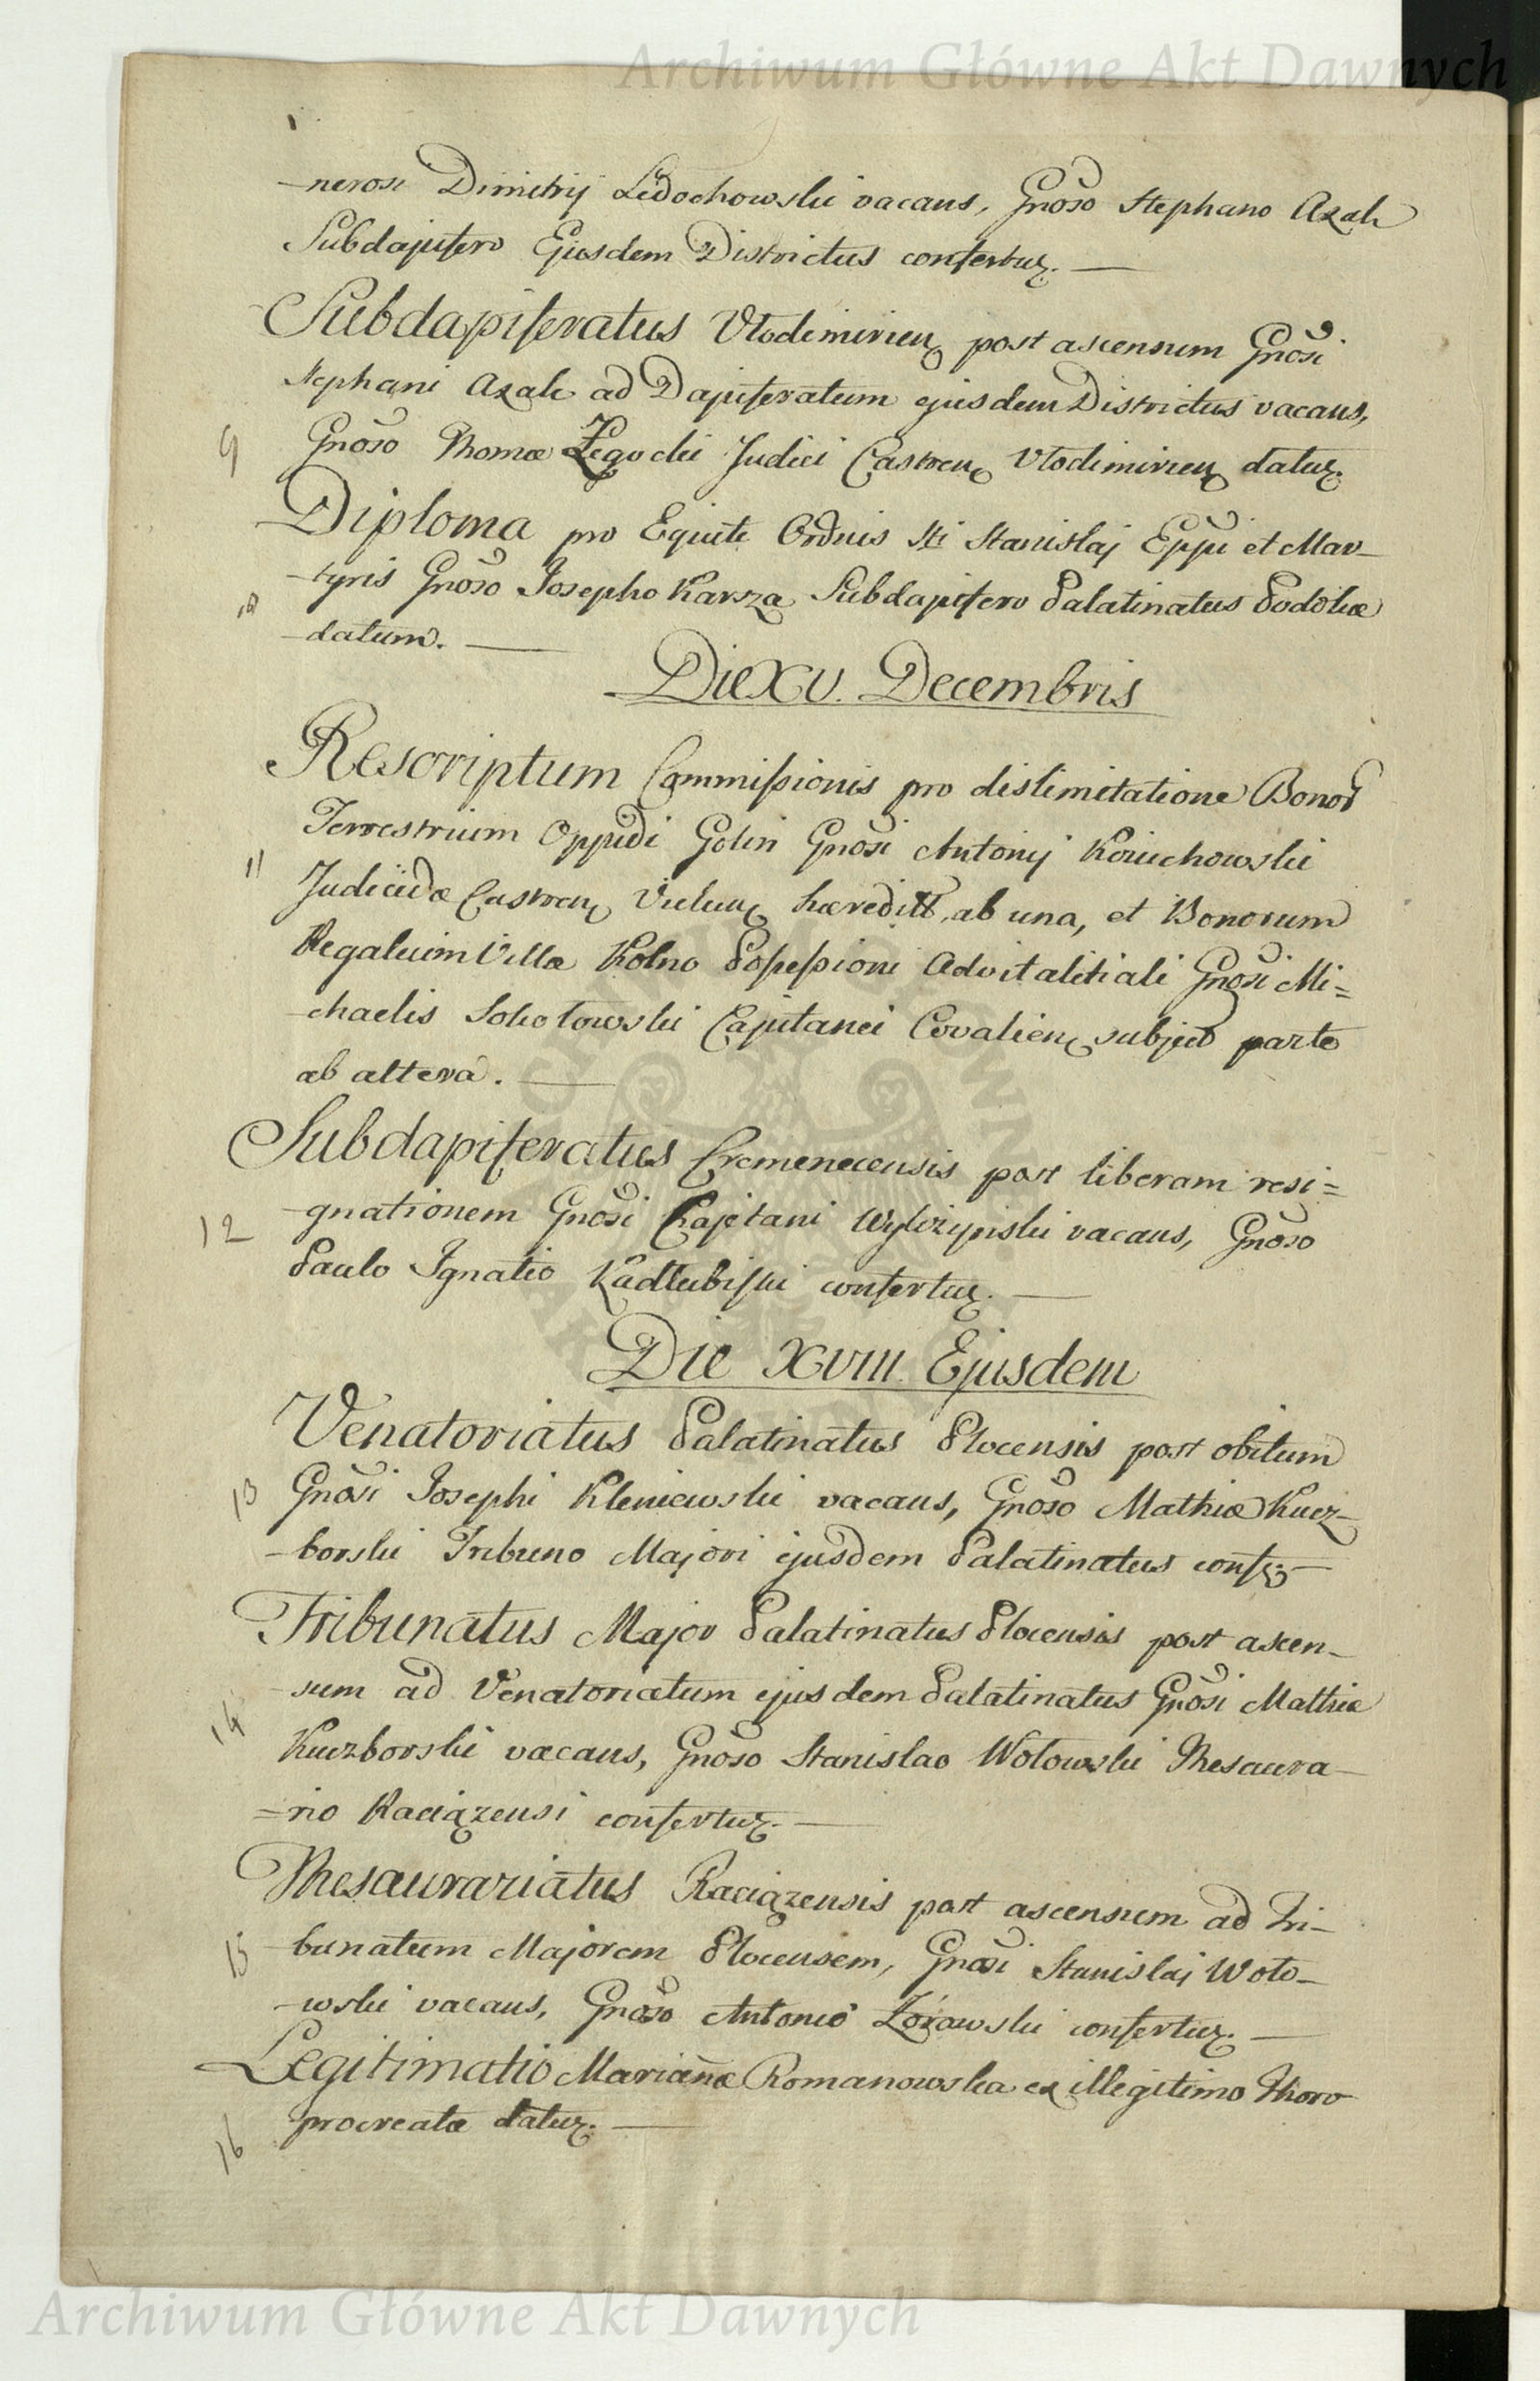 Archiwum Główne Akt Dawnych
-nerosi Dimitrij Ledochowski vacans, Gnoso Stephano Azak
Subdapifero Ejusdem Districtus confertur. —
Subdapiferatus Vlodimirien post ascensum Gnosi
Stephani Azak ad Dapiferatum ejusdem Districtus vacans,
9 Gnoso Thomæ Zegocki Judici Castren Vlodimirien datur.
Diploma pro Equite Ordnis Sti Stanislaj Eppi et Mar-
10 -tyris Gnoso Josepho Karsza Subdapifero Palatinatus Podoliæ
-datum. —
Die XV. Decembris
Rescriptum Commissionis pro dislimitatione Bonor
Terrestrium Oppidi Golin Gnosi Antonij Konichowski
11 Judicidæ Castren Vielun hæreditt, ab una, et Bonorum
Regalium Villæ Kolno Possessioni Advitalitiali Gnosi Mi=
-chaelis Sokołowski Capitanei Covalien subject parte
ab altera. —
Subdapiferatus Cremenecensis post liberam resi=
12 -gnationem Gnosi Cajetani Wylezynski vacans, Gnoso
Paulo Ignatio Kadłubiski confertur. —
Die XVIII. Ejusdem
Venatoriatus Palatinatus Plocensis post obitum
13 Gnosi Josephi Kleniewski vacans, Gnoso Mathiæ Kucz-
-borski Tribuno Majori ejusdem Palatinatus confer —
Tribunatus Major Palatinatus Plocensis post ascen-
14 -sum ad Venatoriatum ejusdem Palatinatus Gnosi Mathiæ
Kuczborski vacans, Gnoso Stanislao Wołowski Thesaura-
=rio Raciązensi confertur. —
Thesaurariatus Raciązensis post ascensum ad Tri-
15 -bunatum Majorem Plocensem, Gnosi Stanislaj Woło-
-wski vacans, Gnoso Antonio Zórawski confertur. —
Legitimatio Mariañæ Romanowska ex illegitimo Thoro
16 procreatæ datur. —
Archiwum Główne Akt Dawnych